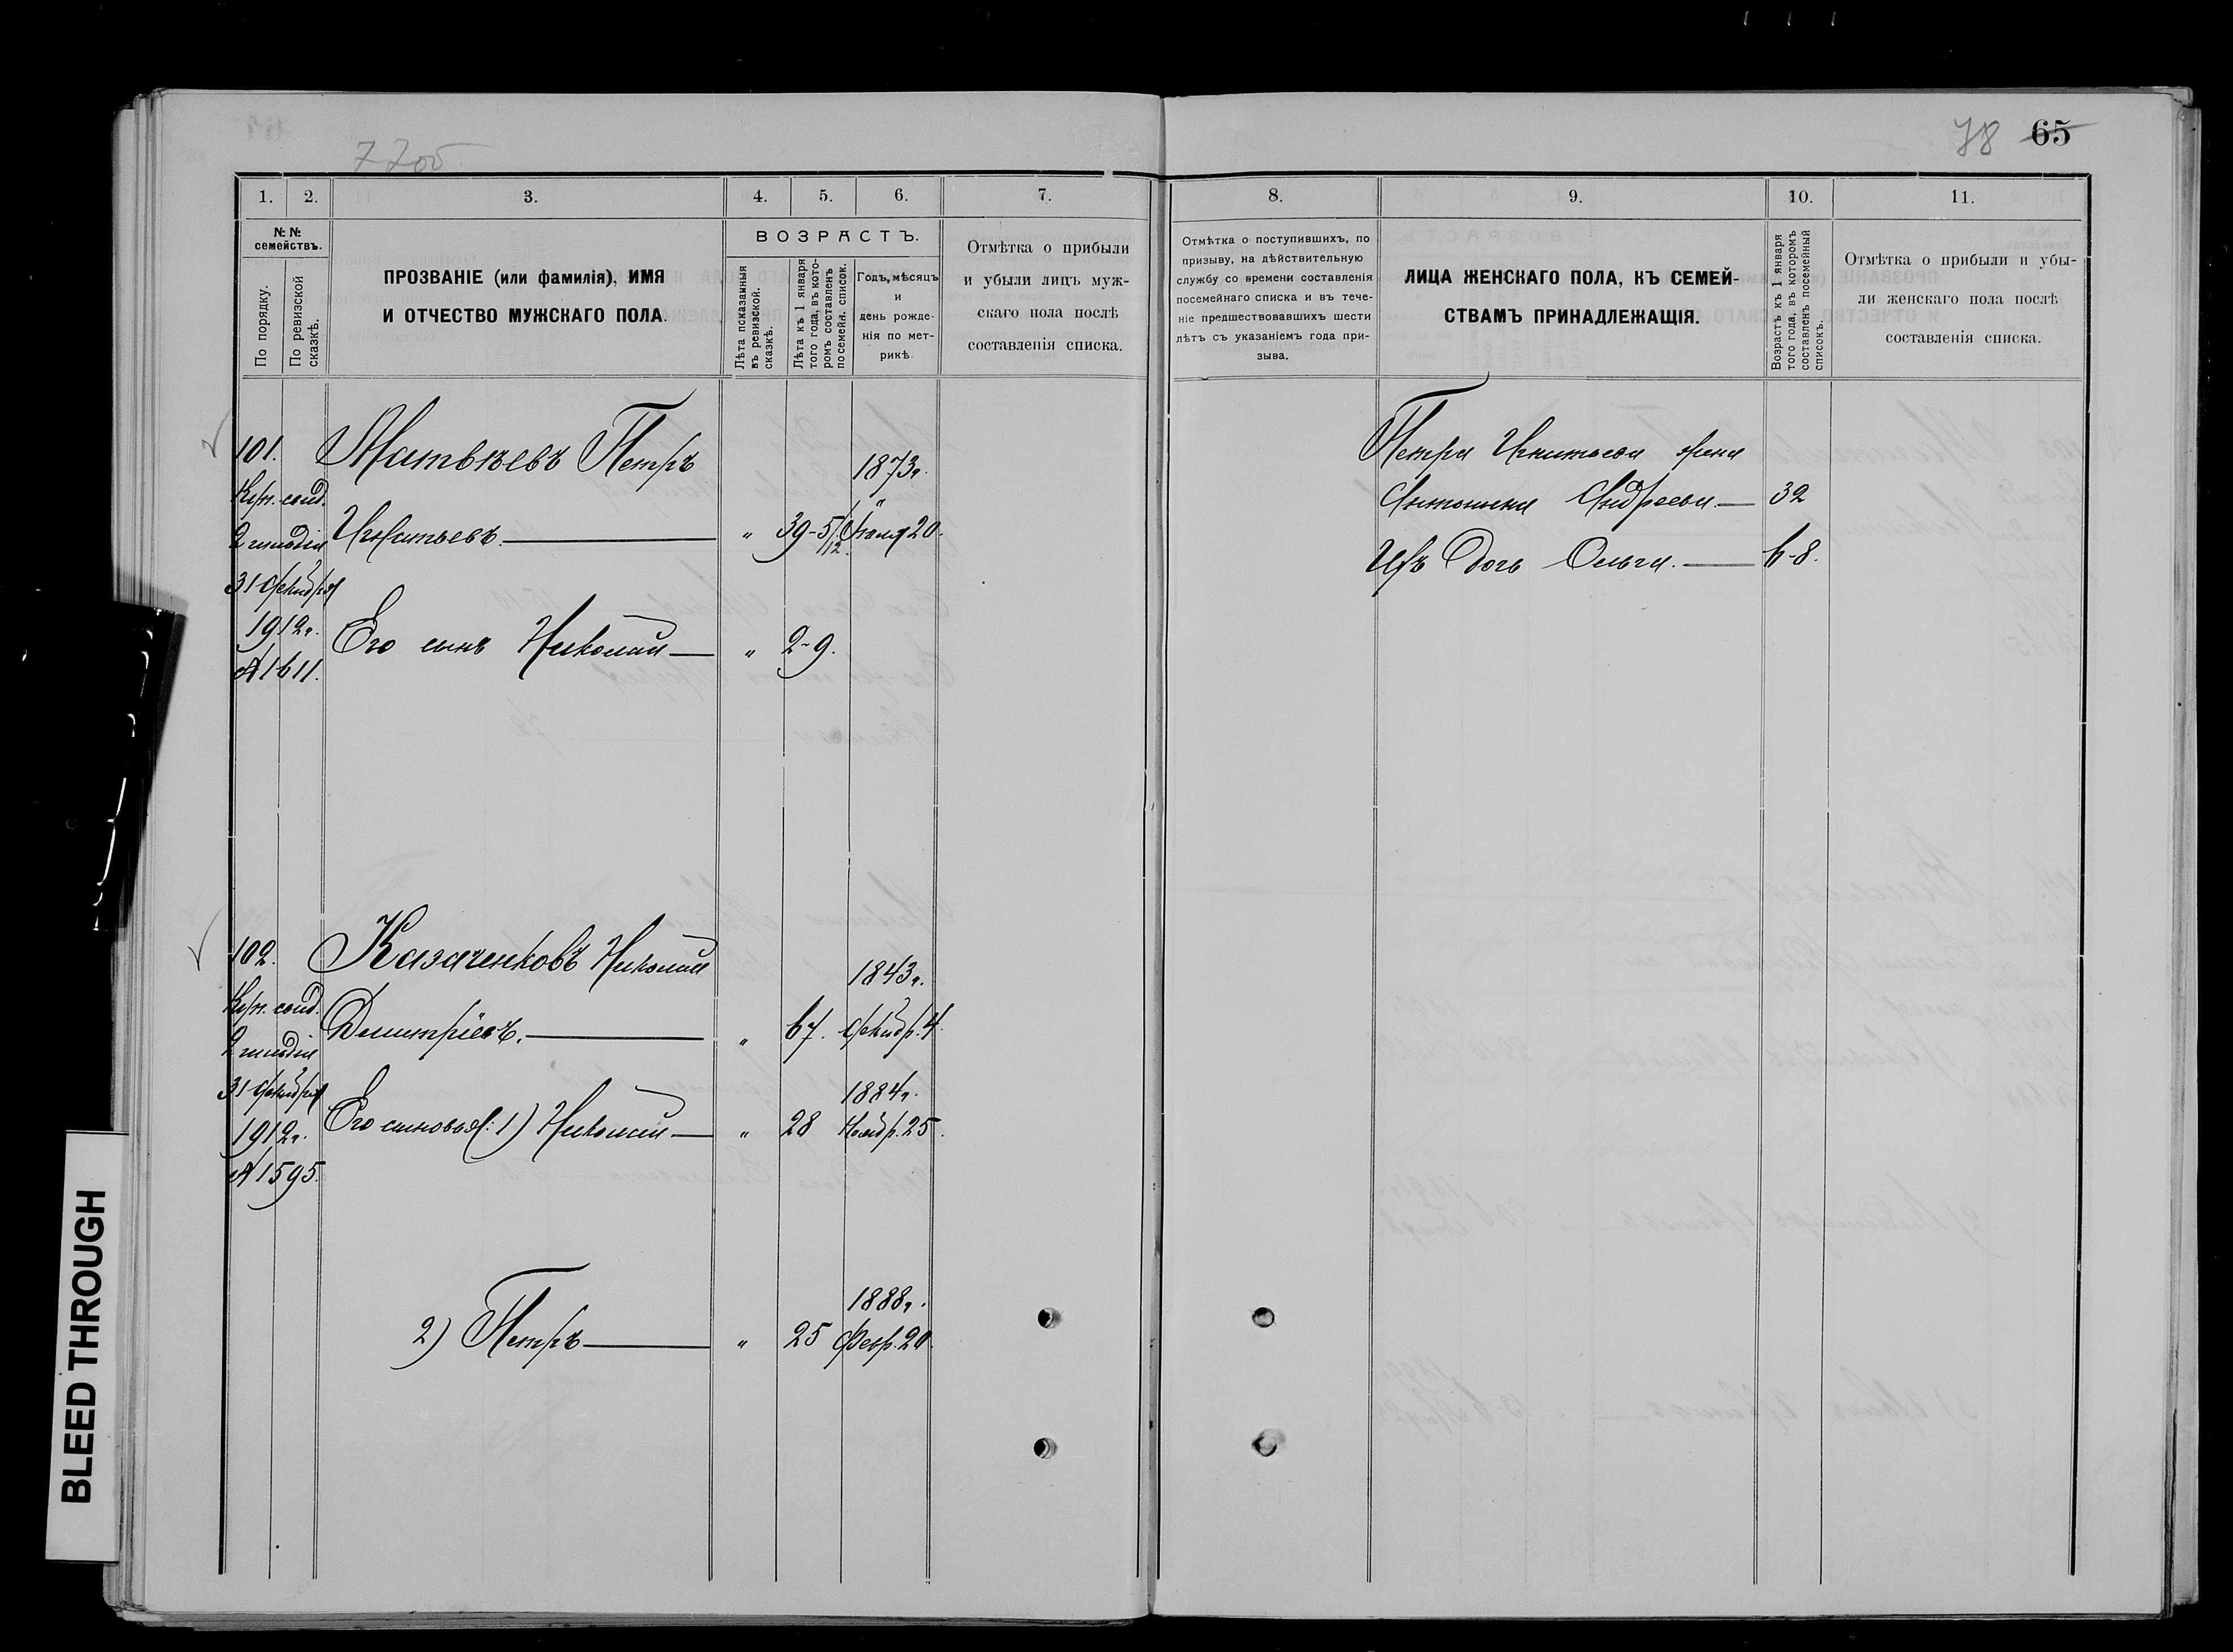 77об
78 65
1. 2. 3. 4. 5. 6. 7.
8. 9. 10. 11.
№ №
семействъ.
По порядку.
По ревизской
сказкѣ.
ПРОЗВАНІЕ (или фамилія), ИМЯ
И ОТЧЕСТВО МУЖСКАГО ПОЛА.
ВОЗРАСТЪ.
Лѣта показанныя
въ ревизской
сказкѣ.
Лѣта къ 1 января
того года, въ кото-
ромъ составленъ
посемейн. список.
Годъ, мѣсяцъ
и
день рожде-
нія по мет-
рикѣ.
Отмѣтка о прибыли
и убыли лицъ муж-
скаго пола послѣ
составленія списка.
Отмѣтка о поступившихъ, по
призыву, на дѣйствительную
службу со времени составленія
посемейнаго списка и въ тече-
ніе предшествовавшихъ шести
лѣтъ съ указаніемъ года при-
зыва.
ЛИЦА ЖЕНСКАГО ПОЛА, КЪ СЕМЕЙ-
СТВАМЪ ПРИНАДЛЕЖАЩІЯ.
Возрастъ къ 1 января
того года, въ которомъ
составленъ посемейный
списокъ.
Отмѣтка о прибыли и убы-
ли женскаго пола послѣ
составленія списка.
101.
Куп. свид.
2 гильдіи
31 Декабря
1912г.
№1611.
Матвѣевъ Петръ 1873г.
Игнатьевъ. " 39-5/12. Іюля 20.
Его сынъ Николай " 2-9.
Петра Игнатьева жена
Антонина Андреева 32
Ихъ дочь Ольга. 6-8.
102.
Куп. свид.
2 гильдіи
31 Декабря
1912г.
№1595.
Казаченковъ Николай 1843г.
Димитріевъ. " 67. Декабр. 4.
1884г.
Его сыновья: 1) Николай " 28 Ноябр. 25.
1888г.
2) Петръ " 25 Февр. 20.
BLEED THROUGH